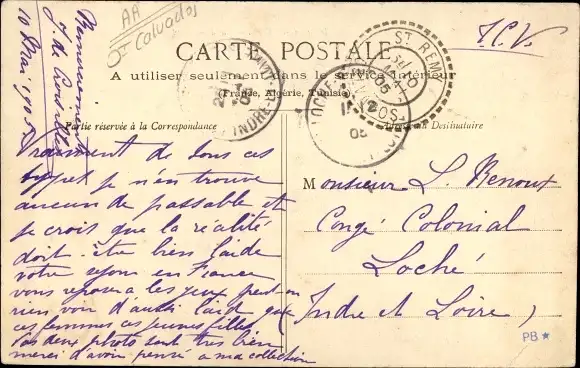 AA
Dt Calvados
T.C.V.
CARTE POSTALE
A utiliser seulement dans le service intérieur
(France, Algérie, Tunisie)
Partie réservée à la Correspondance
Destinataire
ST REMY
CALVADOS
10
MAI
05
INDRE-ET-L
LOCHÉ
05
Remerciements
10 Mai 1905
Vraiment de tous ces
types je n'en trouve
aucun de passable et
je crois que la réalité
doit être bien laide
votre séjour en France
vous reposera les yeux peut-on
rien voir d'aussi laid que
ces femmes ces jeunes filles
Les deux photo sont très bien
merci d'avoir pensé a ma collection
Monsieur L. Renoux
Congé Colonial
Loché
(Indre et Loire)
PB